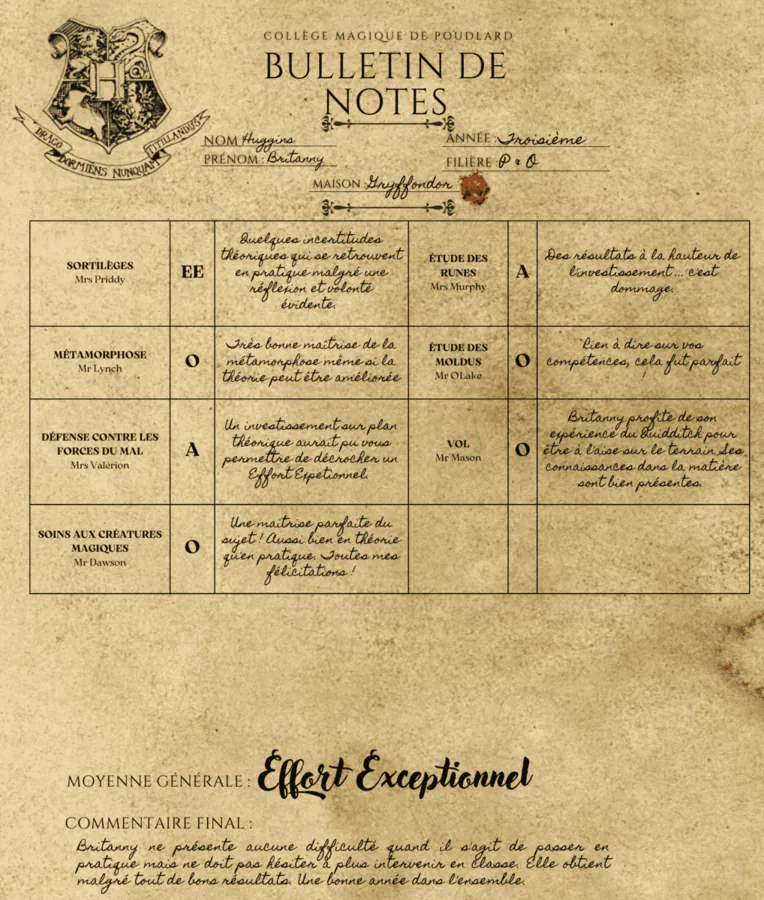 COLLÈGE MAGIQUE DE POUDLARD
BULLETIN DE
NOTES
DRACO DORMIENS NUNQUAM TITILLANDUS
NOM Huggins
PRÉNOM : Britanny
ANNÉE : Troisième
FILIÈRE : P & O
MAISON : Gryffondor
SORTILÈGES
Mrs Priddy
EE
Quelques incertitudes
théoriques qui se retrouvent
en pratique malgré une
réflexion et volonté
évidente.
ÉTUDE DES
RUNES
Mrs Murphy
A
Des résultats à la hauteur de
l'investissement ... c'est
dommage.
MÉTAMORPHOSE
Mr Lynch
O
Très bonne maitrise de la
métamorphose même si la
théorie peut être améliorée
ÉTUDE DES
MOLDUS
Mr O'Lake
O
Rien à dire sur vos
compétences, cela fut parfait
!
DÉFENSE CONTRE LES
FORCES DU MAL
Mrs Valérion
A
Un investissement sur plan
théorique aurait pu vous
permettre de décrocher un
Effort Expetionnel.
VOL
Mr Mason
O
Britanny profite de son
expérience du Quidditch pour
être à l'aise sur le terrain. Ses
connaissances dans la matière
sont bien présentes.
SOINS AUX CRÉATURES
MAGIQUES
Mr Dawson
O
Une maitrise parfaite du
sujet ! Aussi bien en théorie
qu'en pratique. Toutes mes
félicitations !
MOYENNE GÉNÉRALE : Effort Exceptionnel
COMMENTAIRE FINAL :
Britanny ne présente aucune difficulté quand il s'agit de passer en
pratique mais ne doit pas hésiter à plus intervenir en classe. Elle obtient
malgré tout de bons résultats. Une bonne année dans l'ensemble.